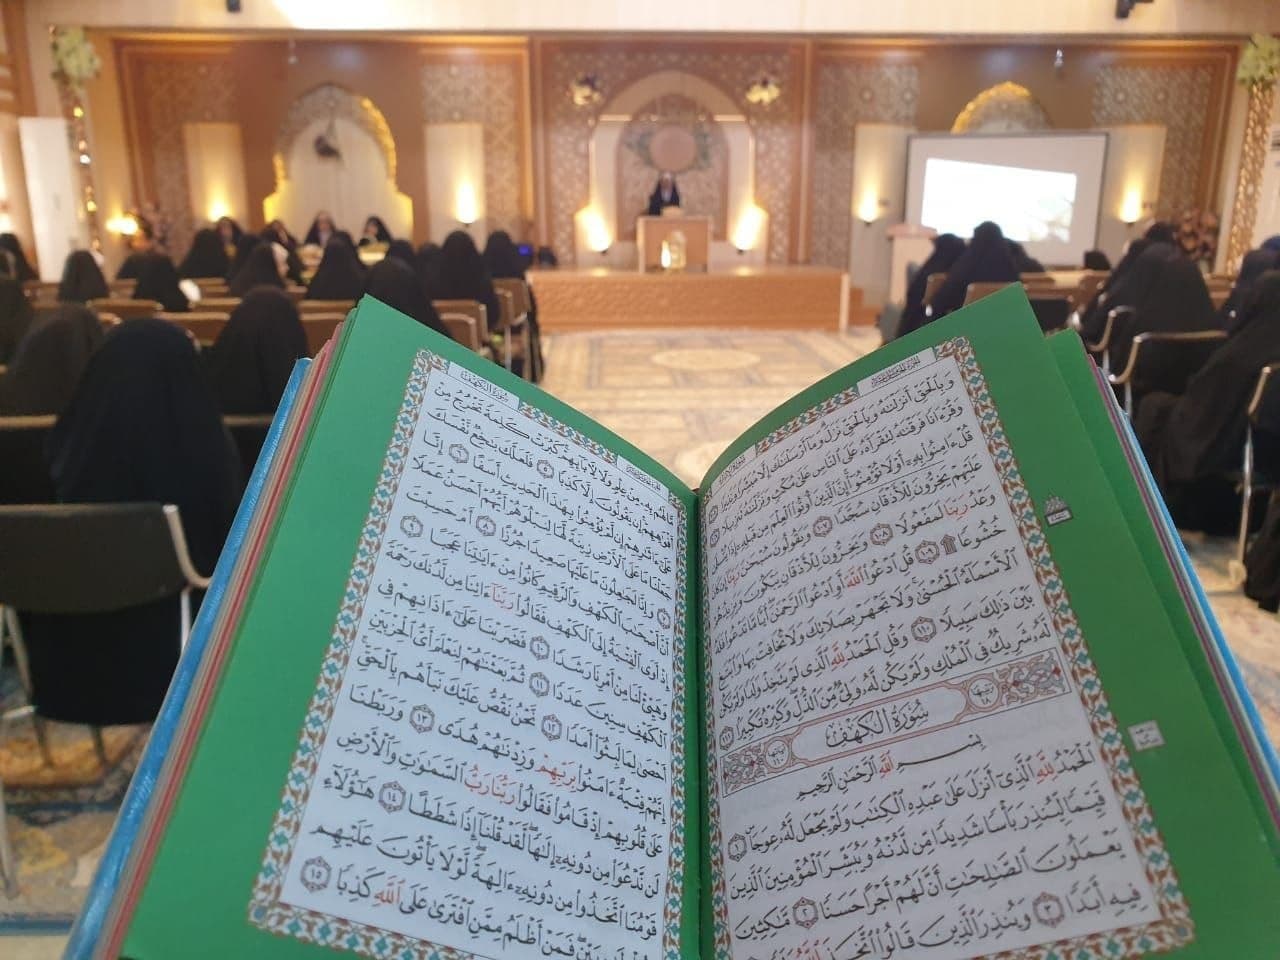 وَبِٱلْحَقِّ أَنزَلْنَٰهُ وَبِٱلْحَقِّ نَزَلَ وَمَآ أَرْسَلْنَٰكَ إِلَّا مُبَشِّرًا وَنَذِيرًا
وَقُرْءَانًا فَرَقْنَٰهُ لِتَقْرَأَهُۥ عَلَى ٱلنَّاسِ عَلَىٰ مُكْثٍ وَنَزَّلْنَٰهُ تَنزِيلًا
قُلْ ءَامِنُوا۟ بِهِۦٓ أَوْ لَا تُؤْمِنُوٓا۟ إِنَّ ٱلَّذِينَ أُوتُوا۟ ٱلْعِلْمَ مِن قَبْلِهِۦٓ إِذَا يُتْلَىٰ
عَلَيْهِمْ يَخِرُّونَ لِلْأَذْقَانِ سُجَّدًا ١٠٧ وَيَقُولُونَ سُبْحَٰنَ رَبِّنَآ إِن كَانَ
وَعْدُ رَبِّنَا لَمَفْعُولًا ١٠٨ وَيَخِرُّونَ لِلْأَذْقَانِ يَبْكُونَ وَيَزِيدُهُمْ
خُشُوعًا ١٠٩ قُلِ ٱدْعُوا۟ ٱللَّهَ أَوِ ٱدْعُوا۟ ٱلرَّحْمَٰنَ أَيًّا مَّا تَدْعُوا۟ فَلَهُ
ٱلْأَسْمَآءُ ٱلْحُسْنَىٰ وَلَا تَجْهَرْ بِصَلَاتِكَ وَلَا تُخَافِتْ بِهَا وَٱبْتَغِ
بَيْنَ ذَٰلِكَ سَبِيلًا ١١٠ وَقُلِ ٱلْحَمْدُ لِلَّهِ ٱلَّذِى لَمْ يَتَّخِذْ وَلَدًا وَلَمْ يَكُن
لَّهُۥ شَرِيكٌ فِى ٱلْمُلْكِ وَلَمْ يَكُن لَّهُۥ وَلِىٌّ مِّنَ ٱلذُّلِّ وَكَبِّرْهُ تَكْبِيرًا ١١١
سُورَةُ الْكَهْفِ
بِسْمِ ٱللَّهِ ٱلرَّحْمَٰنِ ٱلرَّحِيمِ
ٱلْحَمْدُ لِلَّهِ ٱلَّذِىٓ أَنزَلَ عَلَىٰ عَبْدِهِ ٱلْكِتَٰبَ وَلَمْ يَجْعَل لَّهُۥ عِوَجَا ١
قَيِّمًا لِّيُنذِرَ بَأْسًا شَدِيدًا مِّن لَّدُنْهُ وَيُبَشِّرَ ٱلْمُؤْمِنِينَ ٱلَّذِينَ
يَعْمَلُونَ ٱلصَّٰلِحَٰتِ أَنَّ لَهُمْ أَجْرًا حَسَنًا ٢ مَّٰكِثِينَ
فِيهِ أَبَدًا ٣ وَيُنذِرَ ٱلَّذِينَ قَالُوا۟ ٱتَّخَذَ
سُورَةُ الْكَهْفِ
مَّا لَهُم بِهِۦ مِنْ عِلْمٍ وَلَا لِءَابَآئِهِمْ كَبُرَتْ كَلِمَةً تَخْرُجُ مِنْ
أَفْوَٰهِهِمْ إِن يَقُولُونَ إِلَّا كَذِبًا ٥ فَلَعَلَّكَ بَٰخِعٌ نَّفْسَكَ
عَلَىٰٓ ءَاثَٰرِهِمْ إِن لَّمْ يُؤْمِنُوا۟ بِهَٰذَا ٱلْحَدِيثِ أَسَفًا ٦ إِنَّا
جَعَلْنَا مَا عَلَى ٱلْأَرْضِ زِينَةً لَّهَا لِنَبْلُوَهُمْ أَيُّهُمْ أَحْسَنُ عَمَلًا
٧ وَإِنَّا لَجَٰعِلُونَ مَا عَلَيْهَا صَعِيدًا جُرُزًا ٨ أَمْ حَسِبْتَ
أَنَّ أَصْحَٰبَ ٱلْكَهْفِ وَٱلرَّقِيمِ كَانُوا۟ مِنْ ءَايَٰتِنَا عَجَبًا ٩
إِذْ أَوَى ٱلْفِتْيَةُ إِلَى ٱلْكَهْفِ فَقَالُوا۟ رَبَّنَآ ءَاتِنَا مِن لَّدُنكَ رَحْمَةً
وَهَيِّئْ لَنَا مِنْ أَمْرِنَا رَشَدًا ١٠ فَضَرَبْنَا عَلَىٰٓ ءَاذَانِهِمْ فِى
ٱلْكَهْفِ سِنِينَ عَدَدًا ١١ ثُمَّ بَعَثْنَٰهُمْ لِنَعْلَمَ أَىُّ ٱلْحِزْبَيْنِ
أَحْصَىٰ لِمَا لَبِثُوٓا۟ أَمَدًا ١٢ نَّحْنُ نَقُصُّ عَلَيْكَ نَبَأَهُم بِٱلْحَقِّ
إِنَّهُمْ فِتْيَةٌ ءَامَنُوا۟ بِرَبِّهِمْ وَزِدْنَٰهُمْ هُدًى ١٣ وَرَبَطْنَا
عَلَىٰ قُلُوبِهِمْ إِذْ قَامُوا۟ فَقَالُوا۟ رَبُّنَا رَبُّ ٱلسَّمَٰوَٰتِ وَٱلْأَرْضِ
لَن نَّدْعُوَا۟ مِن دُونِهِۦٓ إِلَٰهًا لَّقَدْ قُلْنَآ إِذًا شَطَطًا ١٤ هَٰٓؤُلَآءِ
قَوْمُنَا ٱتَّخَذُوا۟ مِن دُونِهِۦٓ ءَالِهَةً لَّوْلَا يَأْتُونَ عَلَيْهِم
بَيِّنٍ فَمَنْ أَظْلَمُ مِمَّنِ ٱفْتَرَىٰ عَلَى ٱللَّهِ كَذِبًا ١٥